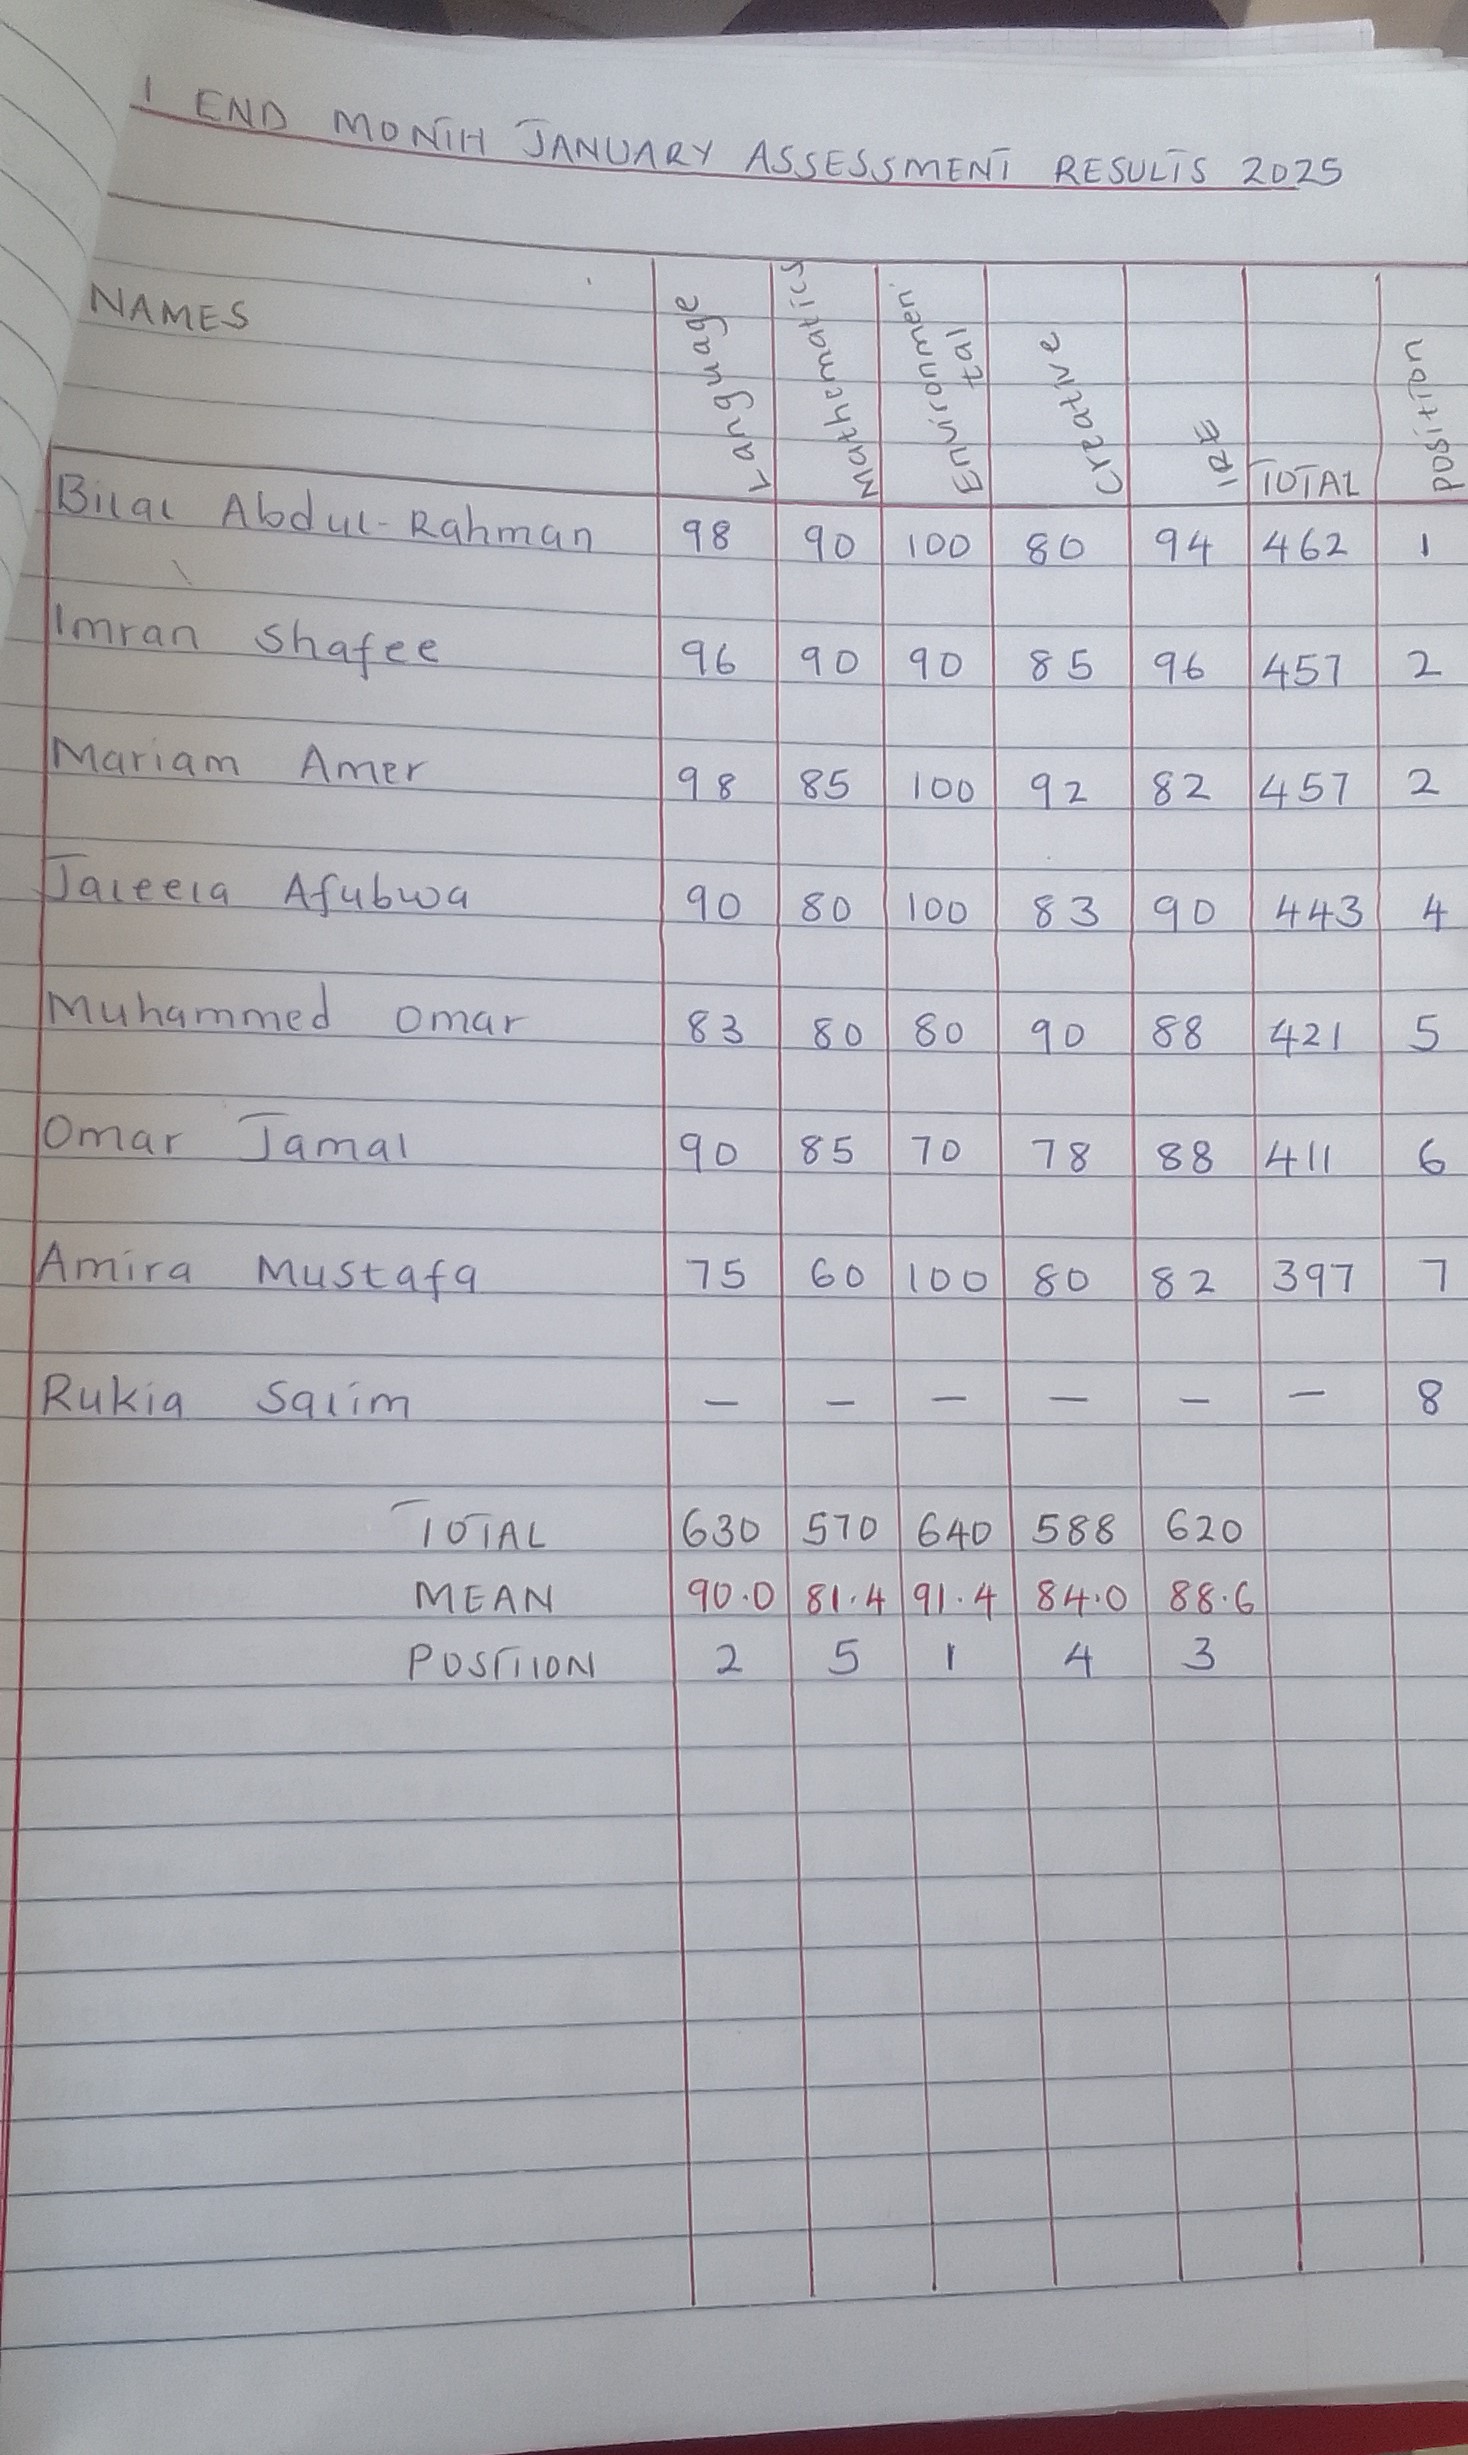 1 END MONTH JANUARY ASSESSMENT RESULTS 2025
NAMES Language Mathematics Environmental Creative IRE TOTAL Position
Bilal Abdul-Rahman 98 90 100 80 94 462 1
Imran Shafee 96 90 90 85 96 457 2
Mariam Amer 98 85 100 92 82 457 2
Jaleela Afubwa 90 80 100 83 90 443 4
Muhammed Omar 83 80 80 90 88 421 5
Omar Jamal 90 85 70 78 88 411 6
Amira Mustafa 75 60 100 80 82 397 7
Rukia Salim – – – – – – 8
TOTAL 630 570 640 588 620
MEAN 90.0 81.4 91.4 84.0 88.6
POSITION 2 5 1 4 3